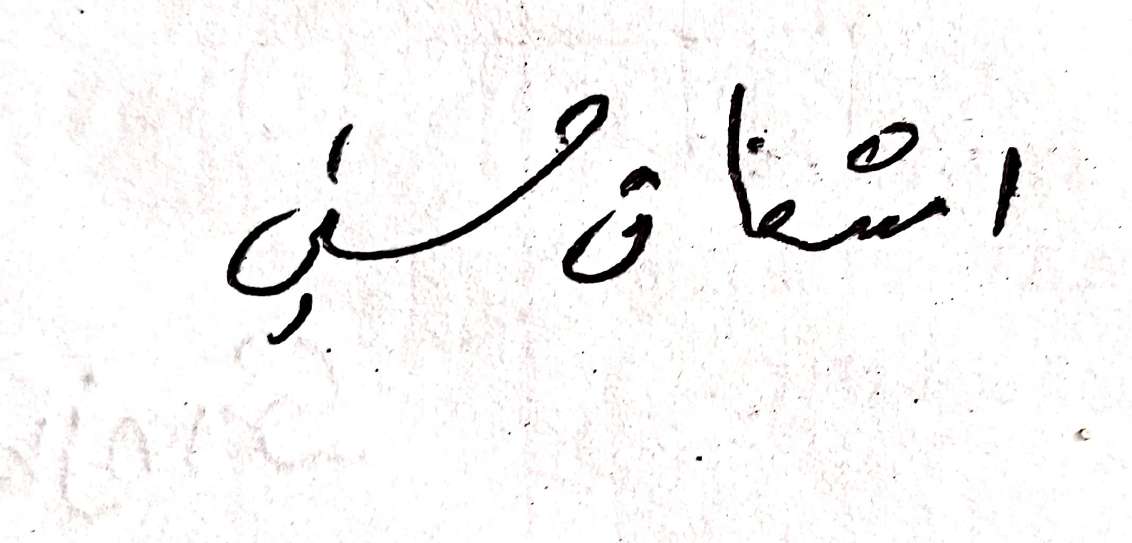 اشفاق حسین